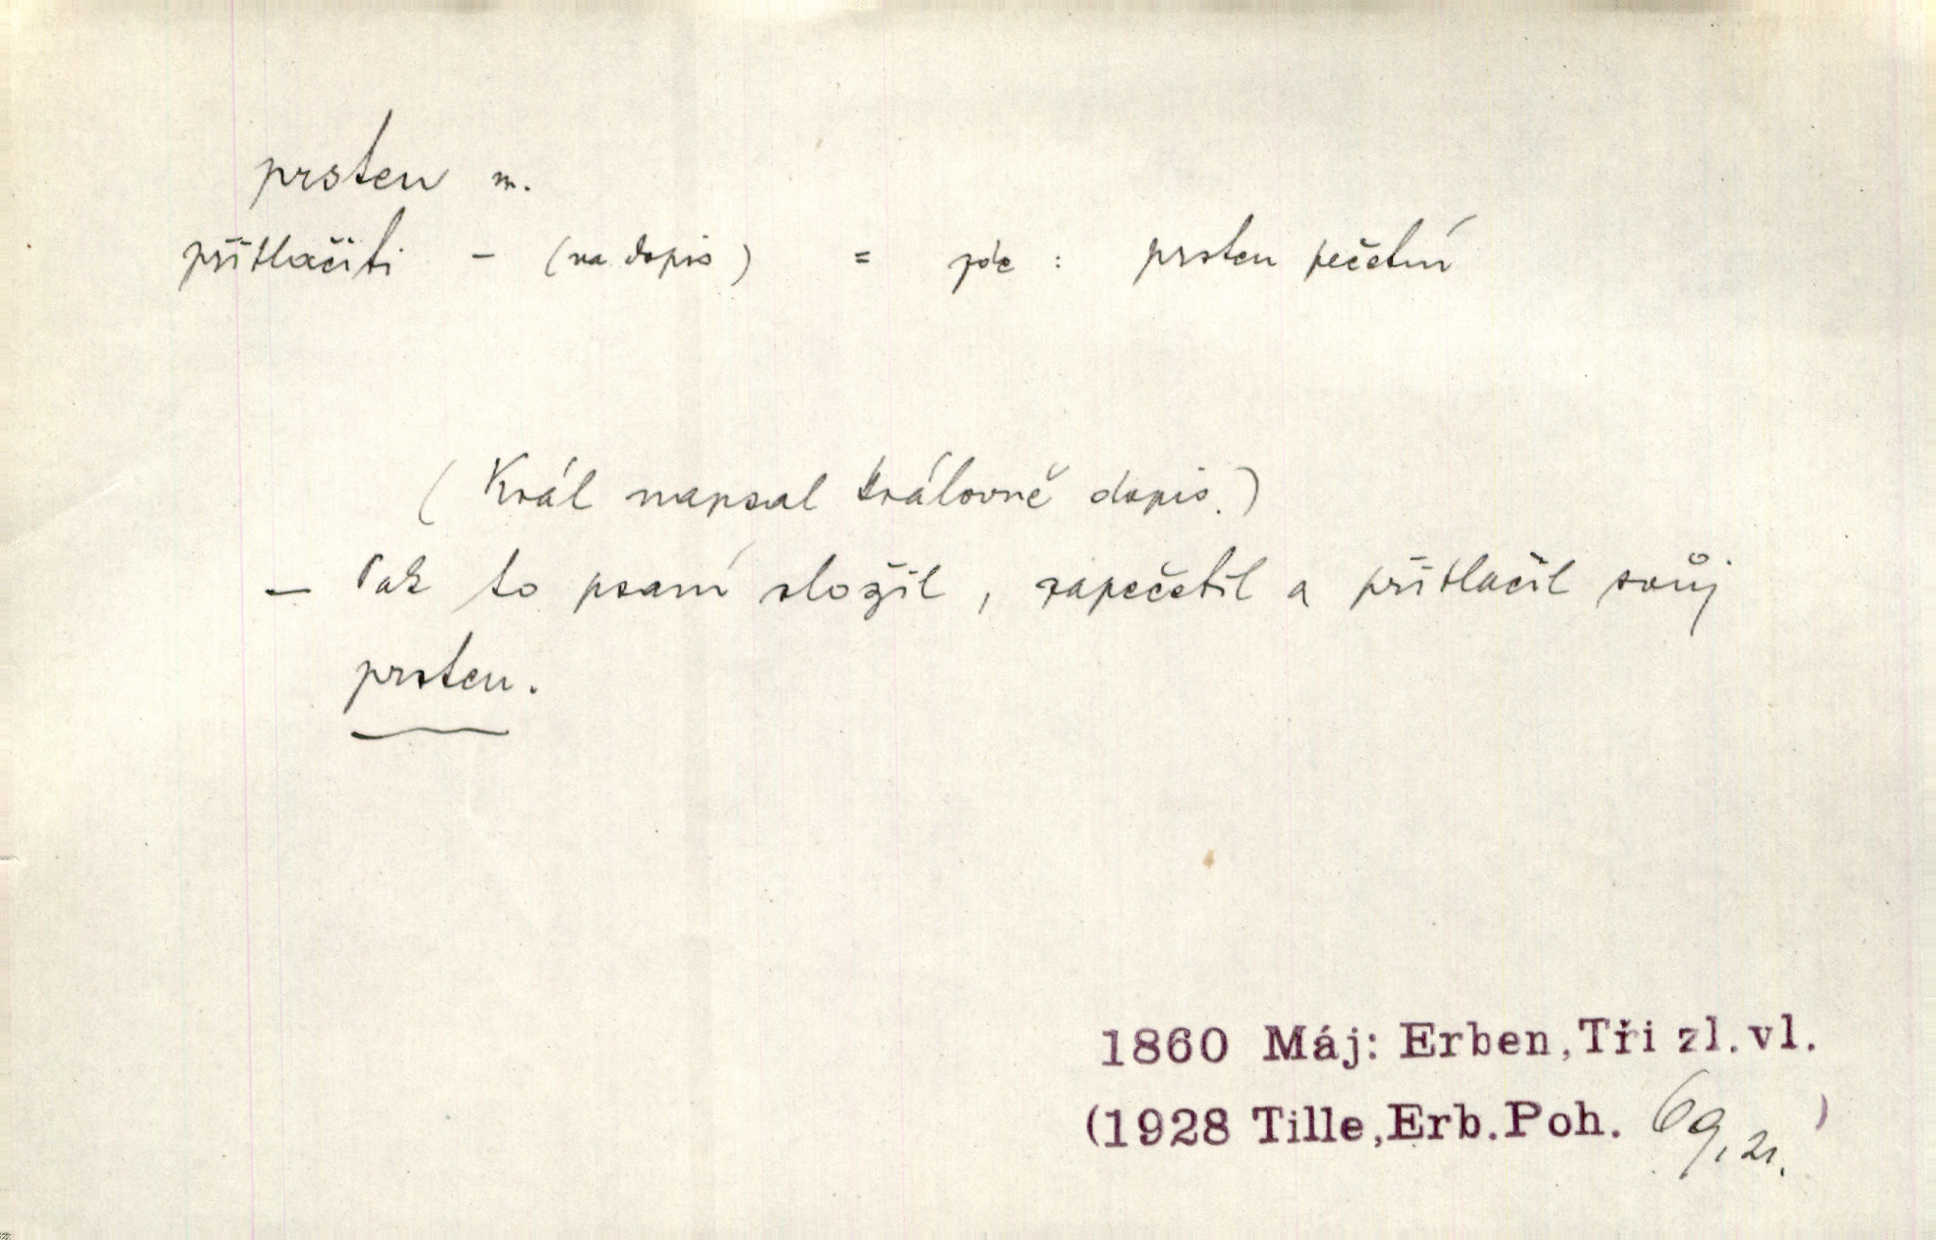 prsten m.
přitlačiti – (na dopis) = zde : prsten pečetní
(Král napsal královně dopis.)
– Pak to psaní složil, zapečetil a přitlačil svůj
prsten.
1860 Máj: Erben, Tři zl. vl.
(1928 Tille, Erb. Poh. 69, 21. )